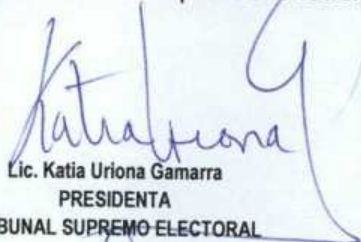 Katia Uriona G
Lic. Katia Uriona Gamarra
PRESIDENTA
BUNAL SUPREMO ELECTORAL